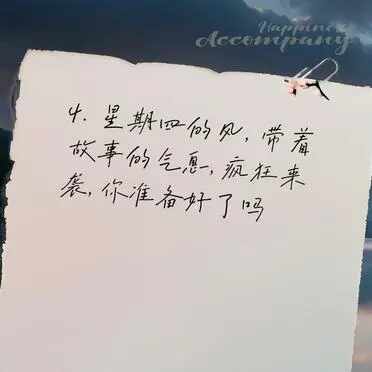 Happiness
Accompany
4. 星期四的风,带着
故事的气息,疯狂来
袭,你准备好了吗